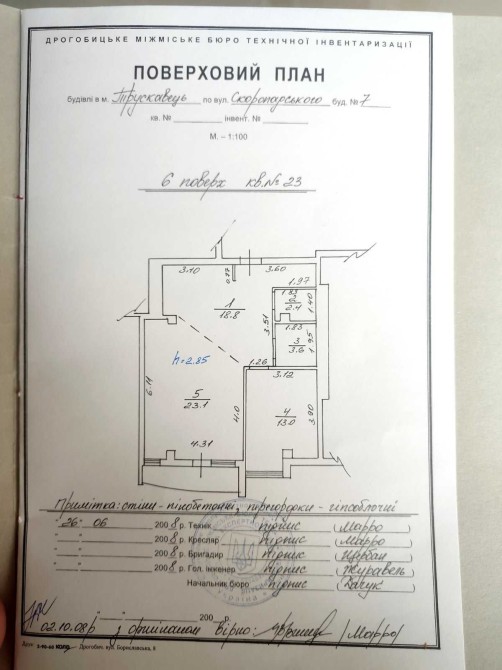 ДРОГОБИЦЬКЕ МІЖМІСЬКЕ БЮРО ТЕХНІЧНОЇ ІНВЕНТАРИЗАЦІЇ
ПОВЕРХОВИЙ ПЛАН
будівлі в м. Трускавець по вул. Скоропадського буд. № 7
кв. № інвент. №
М. – 1:100
6 поверх кв. № 23
3.10 0.77 3.60
1.97
1 18.8
1.83 2 2.4 1.40
3.51
1.83 3 3.6 1.95
h=2.85
1.26 3.12
6.11 5 23.1 4.0 4 13.0 3.90
4.31
Примітка: стіни - пінобетонні, перегородки - гіпсоблочні
26. 06 2008 р. Технік підпис (Марро)
" " 2008 р. Кресляр підпис (Марро)
" " 2008 р. Бригадир підпис (Щербан)
" " 2008 р. Гол. інженер підпис (Журавель)
Начальник бюро підпис (Качук)
" " 200 р.
02.10.08р з оригіналом вірно: /Марро/